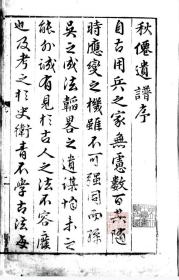 秋僊遺譜序
自古用兵之家無慮數百其隨
時應變之機雖不可強同而孫
吳之威法韜畧之遺謀恂未之
能外誠有見於古人之法不容廢
也及考之於史衛青不學古法每